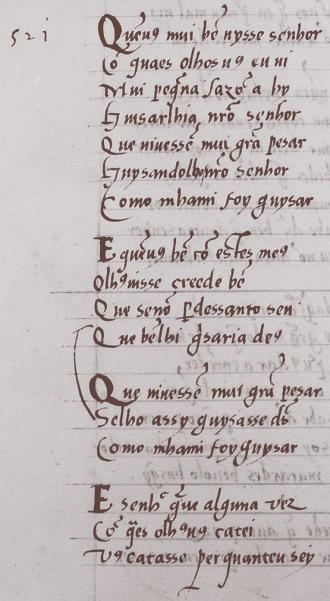 521
Queu9 mui bẽ uysse senhor
Cõ quaes olhos u9 eu ui
Mui peq̃na sazõ a hy
guisarlhia nr̃o senhor
Que uiuessẽ mui grã pesar
Guysandolho nr̃o senhor
Como mhami foy guysar
E queu9 bẽ cõ estes me9
Olh9 uisse creede bẽ
Que senõ perdessanto sen
Que bẽ lhi g̃saria de9
Que uiuessẽ mui grã pesar
Selho assy guysasse ds̃
Como mhami foy guysar
E senhᵉ que alguna vez
Cõ q̃es olh9 u9 catei
U9 catasse per quanteu sey